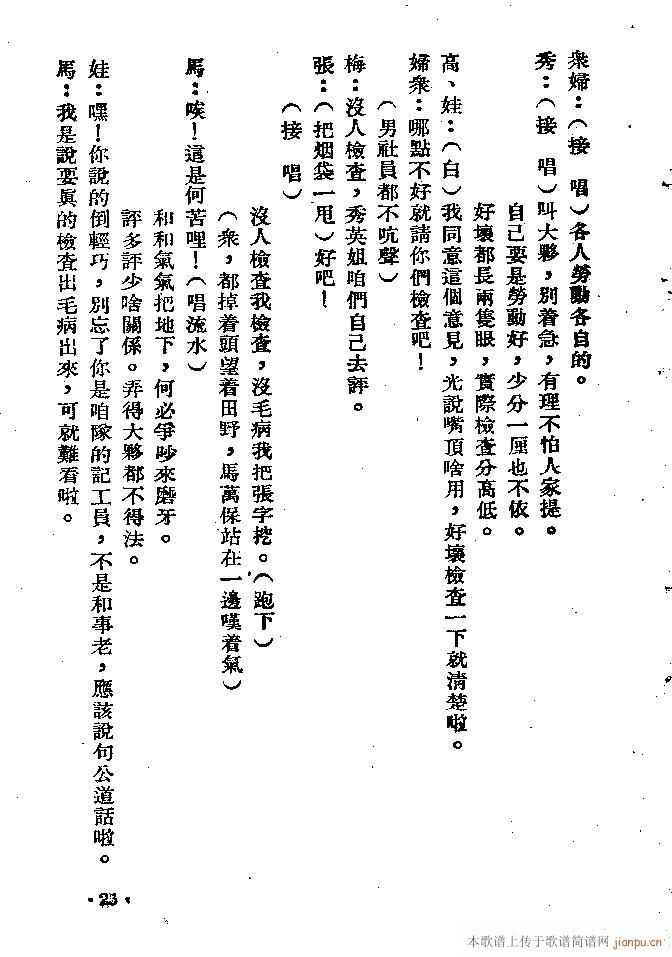 衆婦：（接　唱）各人勞動各自的。
秀：（接　唱）叫大夥，別着急，有理不怕人家提。
自己要是勞動好，少分一厘也不依。
好壞都長兩隻眼，實際檢查分高低。
高、娃：（白）我同意這個意見，光說嘴頂啥用，好壞檢查一下就清楚啦。
婦衆：哪點不好就請你們檢查吧！
（男社員都不吭聲）
梅：沒人檢查，秀英姐咱們自己去評。
張：（把烟袋一甩）好吧！
（接　唱）
沒人檢查我檢查，沒毛病我把張字挖。（跑下）
（衆，都掉着頭望着田野，馬萬保站在一邊嘆着氣）
馬：唉！這是何苦哩！（唱流水）
和和氣氣把地下，何必爭吵來磨牙。
評多評少啥關係。弄得大夥都不得法。
娃：嘿！你說的倒輕巧，別忘了你是咱隊的記工員，不是和事老，應該說句公道話啦。
馬：我是說要眞的檢查出毛病出來，可就難看啦。
·23·
本歌谱上传于歌谱简谱网
jianpu.cn